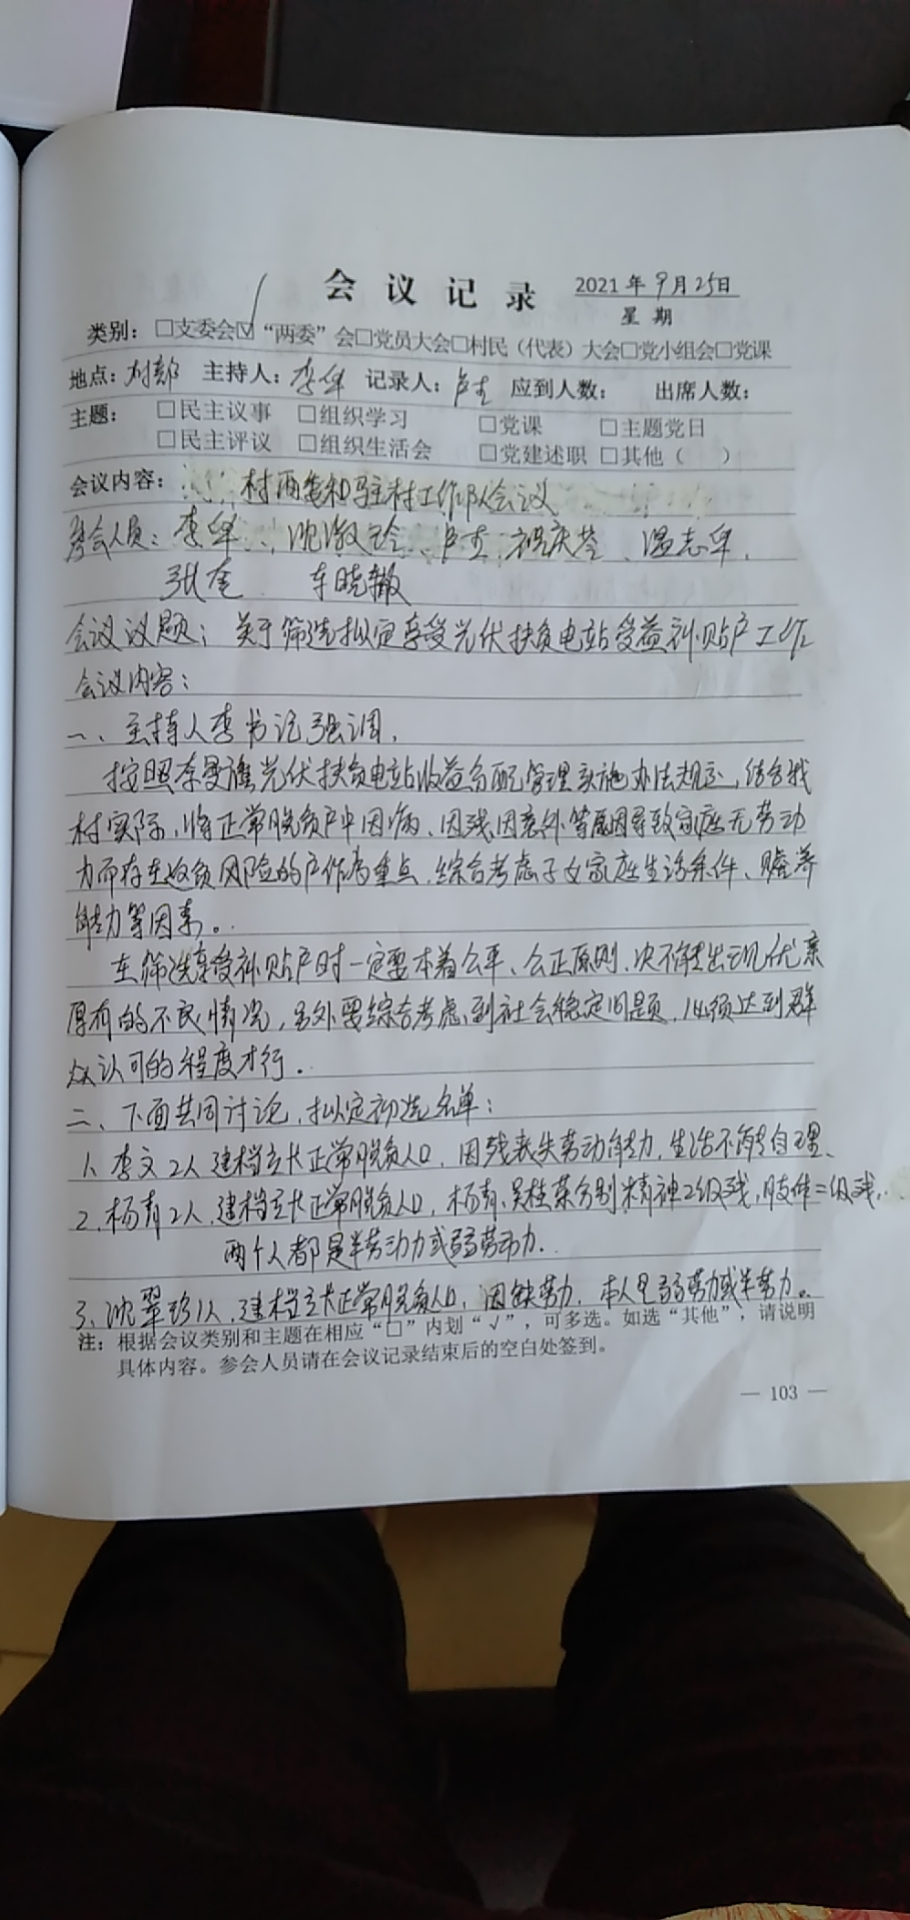 会议记录 2021年9月25日
星期
类别：□支委会☑“两委”会□党员大会□村民（代表）大会□党小组会□党课
地点：村部 主持人：李年 记录人：卢杰 应到人数： 出席人数：
主题： □民主议事 □组织学习 □党课 □主题党日
□民主评议 □组织生活会 □党建述职 □其他（ ）
会议内容： 村两委和驻村工作队会议
参会人员：李年、沈淑玲、卢杰、祝庆芸、温志军、
张奎 车晓辙
会议议题：关于筛选拟定享受光伏扶贫电站受益补贴户工作
会议内容：
一、主持人李书记强调，
按照 光伏扶贫电站收益分配管理实施办法规定，结合我
村实际，将正常脱贫户中因病、因残因意外等原因导致家庭无劳动
力而存在返贫风险的户作为重点，综合考虑子女家庭生活条件、赡养
能力等因素。
在筛选享受补贴户时一定要本着公平、公正原则，决不能出现优亲
厚有的不良情况，另外要综合考虑到社会稳定问题，必须达到群
众认可的程度才行．
二、下面共同讨论，拟定初选名单：
1、李文2人建档立卡正常脱贫人口，因残丧失劳动能力，生活不能自理、
2、杨青2人，建档立卡正常脱贫人口，杨青、吴桂荣分别精神2级残，肢体二级残，
两个人都是半劳动力或弱劳动力．
3、沈翠珍1人，建档立卡正常脱贫人口，因缺劳力，本人是弱劳力或半劳力。
注：根据会议类别和主题在相应“□”内划“√”，可多选。如选“其他”，请说明
具体内容。参会人员请在会议记录结束后的空白处签到。
— 103 —